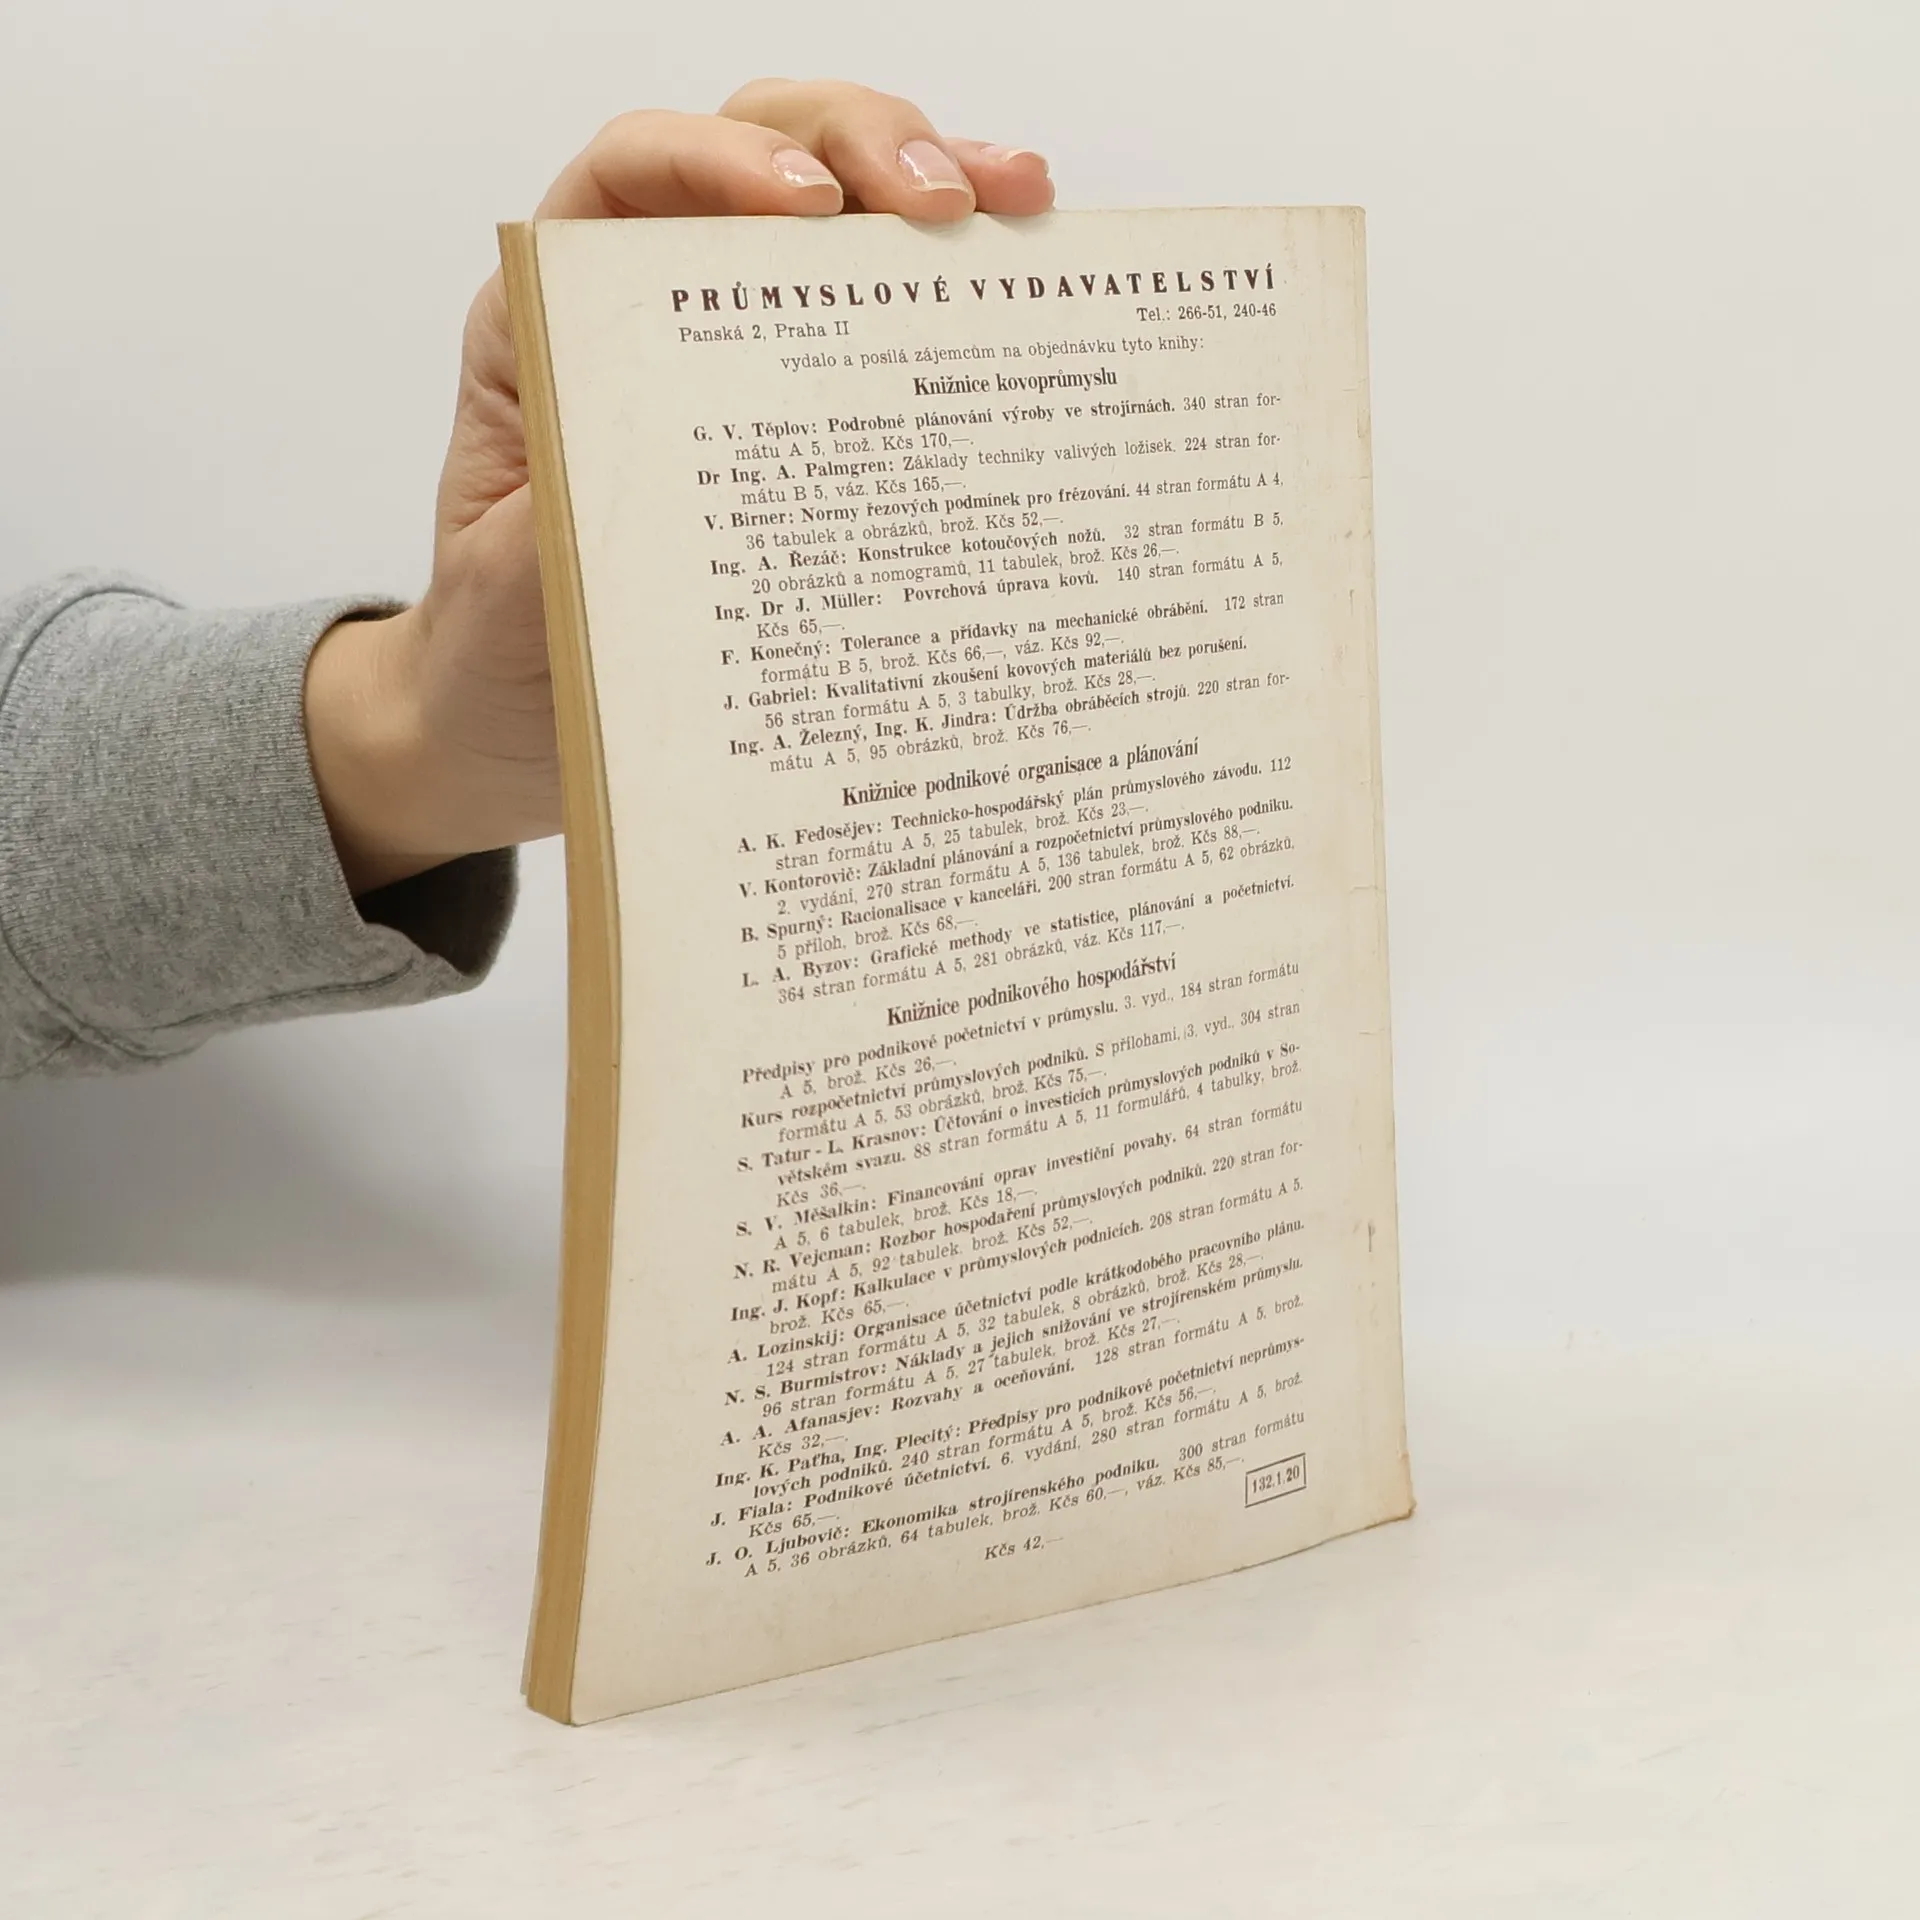 PRŮMYSLOVÉ VYDAVATELSTVÍ
Panská 2, Praha II Tel.: 266-51, 240-46
vydalo a posílá zájemcům na objednávku tyto knihy:
Knižnice kovoprůmyslu
G. V. Těplov: Podrobné plánování výroby ve strojírnách. 340 stran for-
mátu A 5, brož. Kčs 170,—.
Dr Ing. A. Palmgren: Základy techniky valivých ložisek. 224 stran for-
mátu B 5, váz. Kčs 165,—.
V. Birner: Normy řezových podmínek pro frézování. 44 stran formátu A 4,
36 tabulek a obrázků, brož. Kčs 52,—.
Ing. A. Řezáč: Konstrukce kotoučových nožů. 32 stran formátu B 5,
20 obrázků a nomogramů, 11 tabulek, brož. Kčs 26,—.
Ing. Dr J. Müller: Povrchová úprava kovů. 140 stran formátu A 5,
Kčs 65,—.
F. Konečný: Tolerance a přídavky na mechanické obrábění. 172 stran
formátu B 5, brož. Kčs 66,—, váz. Kčs 92,—.
J. Gabriel: Kvalitativní zkoušení kovových materiálů bez porušení.
56 stran formátu A 5, 3 tabulky, brož. Kčs 28,—.
Ing. A. Železný, Ing. K. Jindra: Údržba obráběcích strojů. 220 stran for-
mátu A 5, 95 obrázků, brož. Kčs 76,—.
Knižnice podnikové organisace a plánování
A. K. Fedosějev: Technicko-hospodářský plán průmyslového závodu. 112
stran formátu A 5, 25 tabulek, brož. Kčs 23,—.
V. Kontorovič: Základní plánování a rozpočetnictví průmyslového podniku.
2. vydání, 270 stran formátu A 5, 136 tabulek, brož. Kčs 88,—.
B. Spurný: Racionalisace v kanceláři. 200 stran formátu A 5, 62 obrázků,
5 příloh, brož. Kčs 68,—.
L. A. Byzov: Grafické methody ve statistice, plánování a početnictví.
364 stran formátu A 5, 281 obrázků, váz. Kčs 117,—.
Knižnice podnikového hospodářství
Předpisy pro podnikové početnictví v průmyslu. 3. vyd., 184 stran formátu
A 5, brož. Kčs 26,—.
Kurs rozpočetnictví průmyslových podniků. S přílohami, 3. vyd., 304 stran
formátu A 5, 53 obrázků, brož. Kčs 75,—.
S. Tatur - L. Krasnov: Účtování o investicích průmyslových podniků v So-
větském svazu. 88 stran formátu A 5, 11 formulářů, 4 tabulky, brož.
Kčs 36,—.
S. V. Měšalkin: Financování oprav investiční povahy. 64 stran formátu
A 5, 6 tabulek, brož. Kčs 18,—.
N. R. Vejcman: Rozbor hospodaření průmyslových podniků. 220 stran for-
mátu A 5, 92 tabulek, brož. Kčs 52,—.
Ing. J. Kopf: Kalkulace v průmyslových podnicích. 208 stran formátu A 5,
brož. Kčs 65,—.
A. Lozinskij: Organisace účetnictví podle krátkodobého pracovního plánu.
124 stran formátu A 5, 32 tabulek, 8 obrázků, brož. Kčs 28,—.
N. S. Burmistrov: Náklady a jejich snižování ve strojírenském průmyslu.
96 stran formátu A 5, 27 tabulek, brož. Kčs 27,—.
A. A. Afanasjev: Rozvahy a oceňování. 128 stran formátu A 5, brož.
Kčs 32,—.
Ing. K. Paťha, Ing. Plecitý: Předpisy pro podnikové početnictví neprůmys-
lových podniků. 240 stran formátu A 5, brož. Kčs 56,—.
J. Fiala: Podnikové účetnictví. 6. vydání, 280 stran formátu A 5, brož.
Kčs 65,—.
J. O. Ljubovič: Ekonomika strojírenského podniku. 300 stran formátu
A 5, 36 obrázků, 64 tabulek, brož. Kčs 60,—, váz. Kčs 85,—.
132.1.20
Kčs 42,—